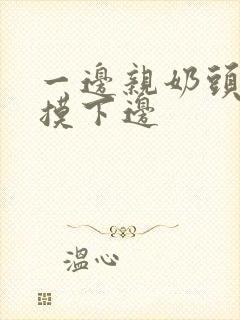 一邊親奶頭
摸下邊
溫心